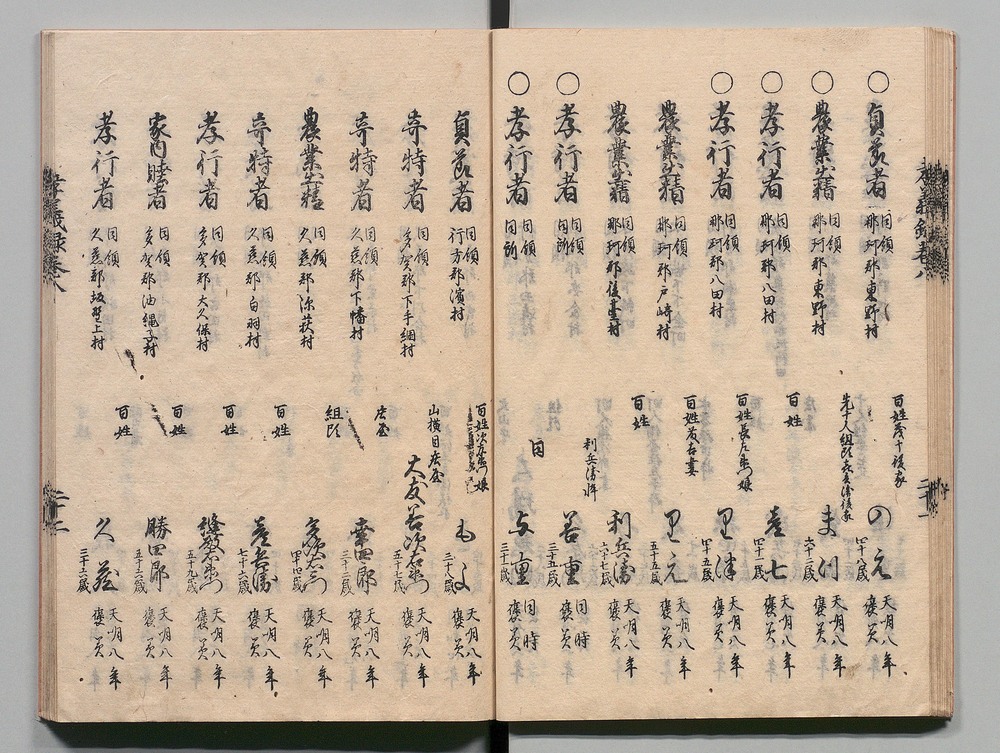 ○貞節者 同領 那珂郡東野村 百姓茂十後家 の元 四十八歳 天明八年 褒美
○農業出精 同領 那珂郡東野村 ま川 六十一歳 天明八年 褒美
○孝行者 同領 那珂郡八田村 百姓 七 四十一歳 天明八年 褒美
○孝行者 同領 那珂郡八田村 百姓長左衛門娘 里津 四十五歳 天明八年 褒美
農業出精 同領 那珂郡戸崎村 百姓 妻 里元 五十五歳 天明八年 褒美
農業出精 同領 那珂郡後臺村 百姓 利兵衛 六十七歳 天明八年 褒美
○孝行者 同領 同所 利兵衛忰 善重 三十五歳 同時 褒美
○孝行者 同領 同所 同 与重 三十歳 同時 褒美
貞節者 同領 行方郡濱村 百姓次左衛門娘 もよ 三十八歳 天明八年 褒美
奇特者 同領 多賀郡下手綱村 山横目庄屋 大友善次右衛門 五十七歳 天明八年 褒美
奇特者 同領 久慈郡下幡村 庄屋 幸四郎 三十二歳 天明八年 褒美
農業出精 同領 久慈郡深荻村 組頭 四十四歳 天明八年 褒美
奇特者 同領 久慈郡白羽村 百姓 兵衛 七十六歳 天明八年 褒美
孝行者 同領 多賀郡大久保村 百姓 右衛門 五十九歳 天明八年 褒美
家内睦者 同領 多賀郡油縄子村 百姓 勝四郎 五十六歳 天明八年 褒美
孝行者 同領 久慈郡坂野上村 百姓 久蔵 三十六歳 天明八年 褒美